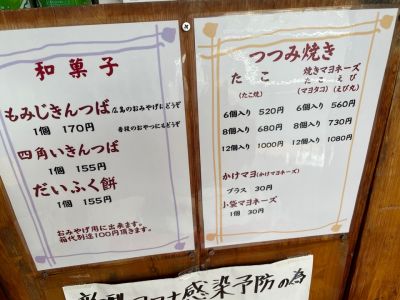 和菓子
もみじきんつば 広島のおみやげにもどうぞ
1個 170円 普段のおやつにもどうぞ
四角いきんつば
1個 155円
だいふく餅
1個 155円
おみやげ用に出来ます。
箱代別途100円頂きます。
つつみ焼き
たこ
(たこ焼)
6個入り 520円
8個入り 680円
12個入り 1000円
焼きマヨネーズ
たこ えび
(マヨタコ) (えび丸)
6個入り 560円
8個入り 730円
12個入り 1080円
かけマヨ(かけマヨネーズ)
プラス 30円
小袋マヨネーズ
1個 30円
新型コロナ感染予防の為